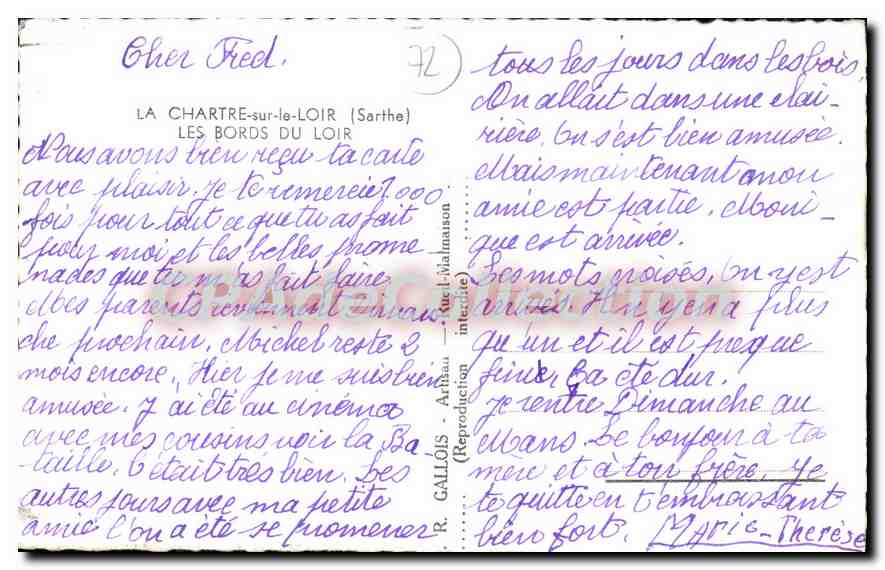 Cher Fred.
72
LA CHARTRE-sur-le-LOIR (Sarthe)
LES BORDS DU LOIR
Nous avons bien reçu ta carte
avec plaisir. Je te remercie 1000
fois pour tout ce que tu as fait
pour moi et les belles prome-
nades que tu m'as fait faire
Mes parents reviennent diman
che prochain. Michel reste 2
mois encore. Hier je me suis bien
amusée. J'ai été au cinéma
avec mes cousins voir la Ba-
taille. C'était très bien. Les
autres jours avec ma petite
amie l'on a été se promener
R. GALLOIS - Artisan - Rueil-Malmaison.
(Reproduction interdite)
tous les jours dans les bois.
On allait dans une clai-
rière. On s'est bien amusée.
Mais maintenant mon
amie est partie. Moni-
que est arrivée.
Les mots croisés, On y est
arrivés. Il n'y en a plus
qu'un et il est presque
fini, ça été dur.
Je rentre Dimanche au
Mans. Le bonjour à ta
mère et à ton frère. Je
te quitte en t'embrassant
bien fort. Marie-Thérèse
CPADeCollection